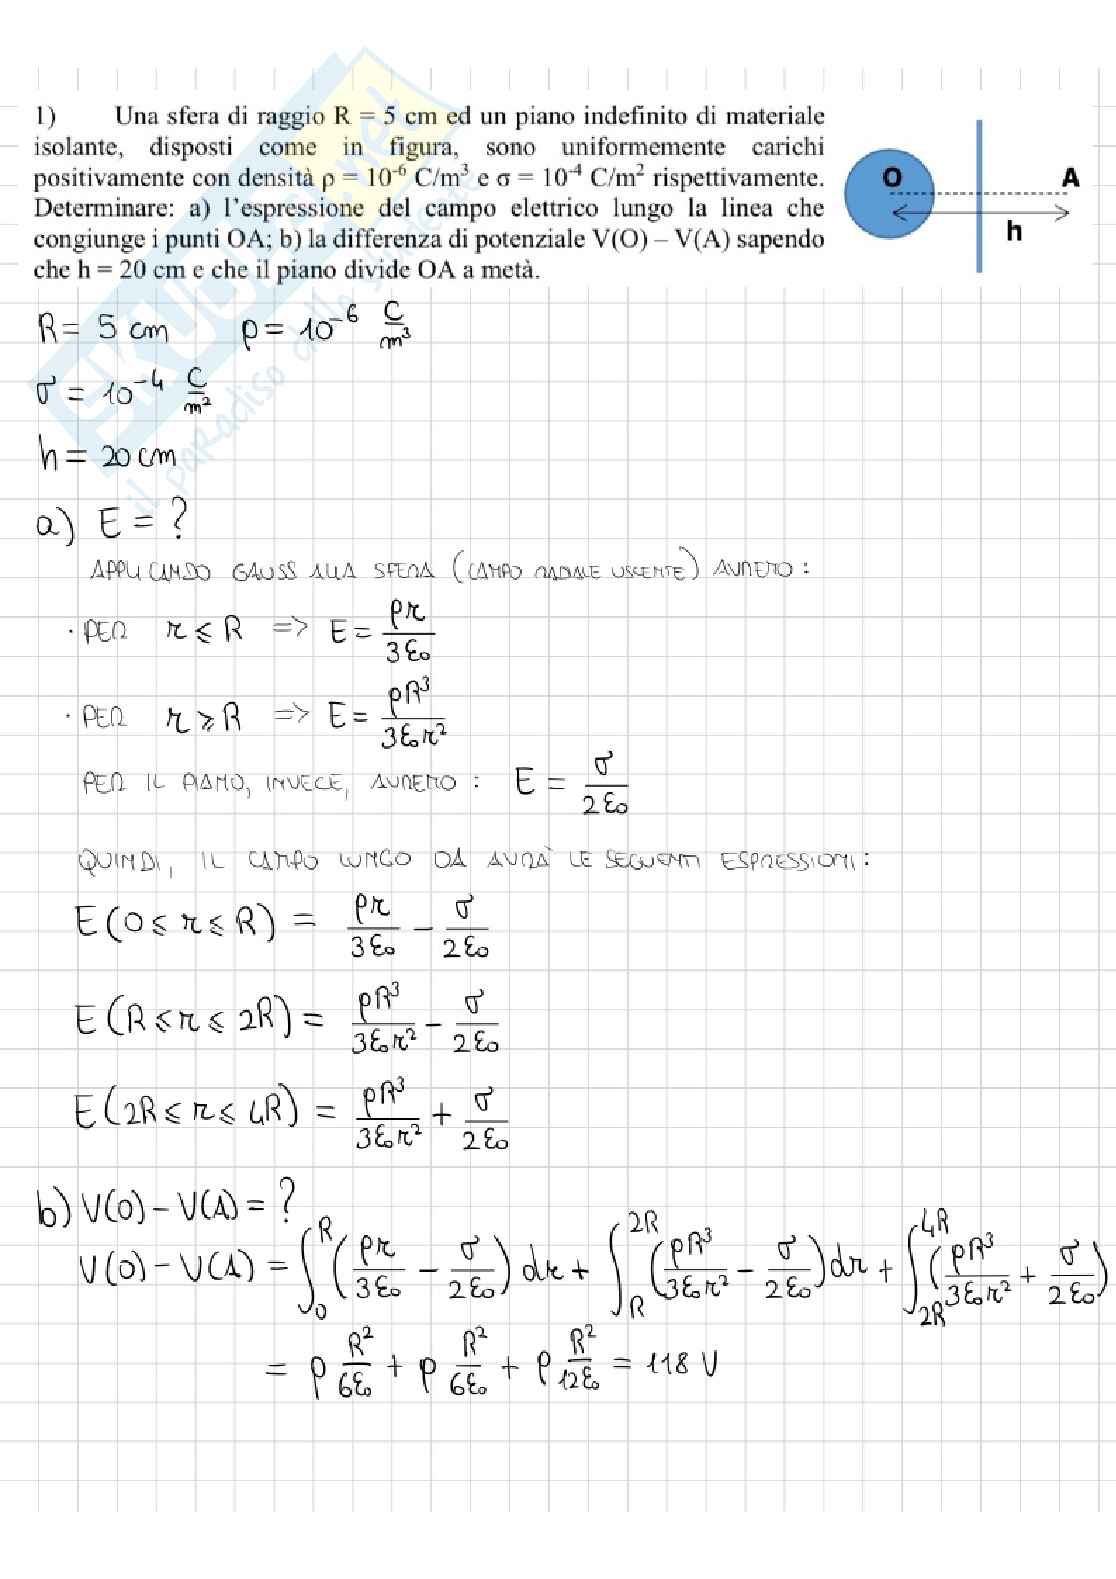 1) Una sfera di raggio R = 5 cm ed un piano indefinito di materiale
isolante, disposti come in figura, sono uniformemente carichi
positivamente con densità ρ = 10⁻⁶ C/m³ e σ = 10⁻⁴ C/m² rispettivamente.
Determinare: a) l'espressione del campo elettrico lungo la linea che
congiunge i punti OA; b) la differenza di potenziale V(O) – V(A) sapendo
che h = 20 cm e che il piano divide OA a metà.
O A
h
R = 5 cm ρ = 10⁻⁶ C/m³
σ = 10⁻⁴ C/m²
h = 20 cm
a) E = ?
APPLICANDO GAUSS ALLA SFERA (CAMPO RADIALE USCENTE) AVREMO :
· PER r ⩽ R => E = ρr/3ε₀
· PER r ⩾ R => E = ρR³/3ε₀r²
PER IL PIANO, INVECE, AVREMO : E = σ/2ε₀
QUINDI, IL CAMPO LUNGO OA AVRÀ LE SEGUENTI ESPRESSIONI :
E(0 ⩽ r ⩽ R) = ρr/3ε₀ − σ/2ε₀
E(R ⩽ r ⩽ 2R) = ρR³/3ε₀r² − σ/2ε₀
E(2R ⩽ r ⩽ 4R) = ρR³/3ε₀r² + σ/2ε₀
b) V(O) − V(A) = ?
V(O) − V(A) = ∫₀^R (ρr/3ε₀ − σ/2ε₀) dr + ∫_R^2R (ρR³/3ε₀r² − σ/2ε₀) dr + ∫_2R^4R (ρR³/3ε₀r² + σ/2ε₀)
= ρ R²/6ε₀ + ρ R²/6ε₀ + ρ R²/12ε₀ = 118 V
SKUOLA.net
il paradiso dello studente